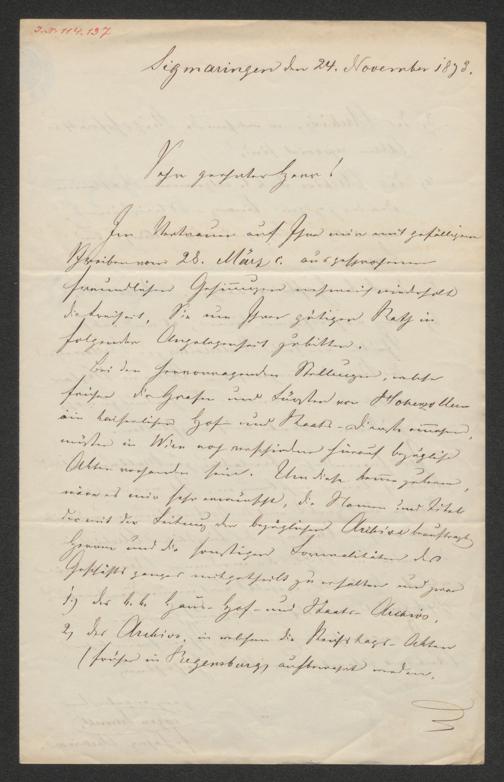 J.N. 114.137
Sigmaringen den 24. November 1873.
Sehr geehrter Herr!
Im Vertrauen auf Ihre mir mit gefälligem
Schreiben vom 28. März c. ausgesprochenen
freundlichen Gesinnungen nehme ich wiederholt
die Freiheit, Sie um Ihren gütigen Rath in
folgender Angelegenheit zu bitten.
Bei den hervorragenden Stellungen, welche
früher die Grafen und Fürsten von Hohenzollern
im kaiserlichen Hof- und Staats-Dienste einnahmen,
müßen in Wien noch verschiedene hierauf bezügliche
Akten vorhanden sein. Um diese kennen zu lernen,
wäre es mir sehr erwünscht, die Namen und Titel
der mit der Leitung der bezüglichen Archive beauftragten
Herren und die sonstigen Formalitäten des
Geschäftsganges mitgetheilt zu erhalten und zwar
1.) des k. k. Haus- Hof- und Staats-Archivs,
2.) des Archivs, in welchem die Reichstags-Akten
(früher in Regensburg) aufbewahrt werden.